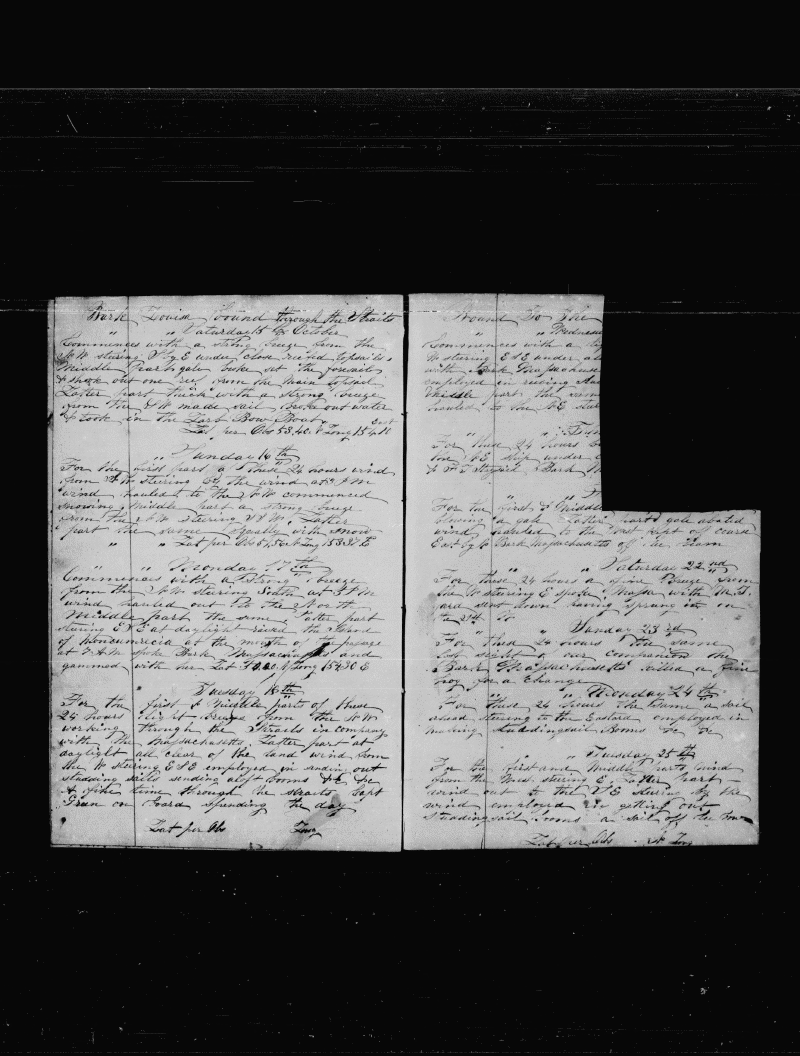 Bark Louisa bound through the Straits
" " Saturday 15th October
Commences with a strong breeze from the
NW stering S by E under close reefed topsails
Middle part gale broke set the foresails
& shook out one reef from the Main topsail
Latter part thick with a strong breeze
from the NW made sail Broke out water
& took in the Larb Bow Boat
Lat per Obs 53,40 N Long 154 11 East
" Sunday 16th
For the first part of these 24 hours wind
from NW stering the wind at PM
wind hauled to the NW commenced
snowing Middle part a strong breeze
from the NW Stering SSW Latter
part the same Squally with Snow
" " Lat per Obs 51,56 N Long 153 31 E
" " Monday 17th
Commences with a strong breeze
from the NW stering South at PM
wind hauled out to the North
Middle part the same Latter part
stering ENE at daylight raised the Island
of at the mouth of the passage
at 7 AM spoke Bark Massachusetts and
gammed with her Lat N Long 154 30 E
" Tuesday 18th
For the first & Middle parts of these
24 hours light breeze from the NW
working through the Straits in company
with the Massachusetts Latter part at
daylight all clear of the land wind from
the W stering E S E employed in sending out
studding sails sending aloft booms &c &c
A fine time through the straits Capt
Green on board spending the day
Lat per Obs Long
Bound To the
" Wednes
Commences with a
W stering E S E under all
with Bark Massachuse
employed in reeving
Middle part the same
hauled to the
For these 24 hours
the ship under
Bark M
For the first & Middle
blowing a gale Latter part gale abated
wind hauled to the West kept off course
East by S Bark Massachusetts off the beam
" " Saturday 22nd
For these 24 hours a fine breeze from
the W stering E spoke Massa with M. T.
yard sent down having sprung it on
the 21st
" Sunday 23rd
For these 24 hours the same
lost sight of our companion the
Bark Massachusetts killed a fine
hog for a change
" Monday 24th
For these 24 hours the same a sail
ahead stering to the Eastard employed in
making Studdingsail Booms &c &c
" Tuesday 25th
For the first and Middle parts wind
from the West stering E. Latter part
wind out to the SE stering by the
wind employed in getting out
Studdingsail booms a sail off the bow
Lat per Obs N Long